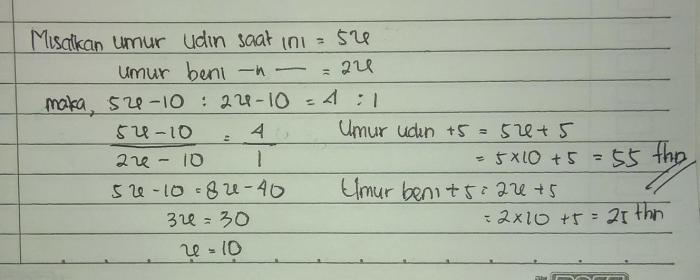 Misalkan umur Udin saat ini = 5x
umur beni —〃— = 2x
maka, 5x - 10 : 2x - 10 = 4 : 1
5x - 10 / 2x - 10 = 4 / 1
5x - 10 = 8x - 40
3x = 30
x = 10
Umur udin +5 = 5x + 5
= 5×10 + 5 = 55 thn
Umur beni +5 = 2x + 5
= 2×10 + 5 = 25 thn